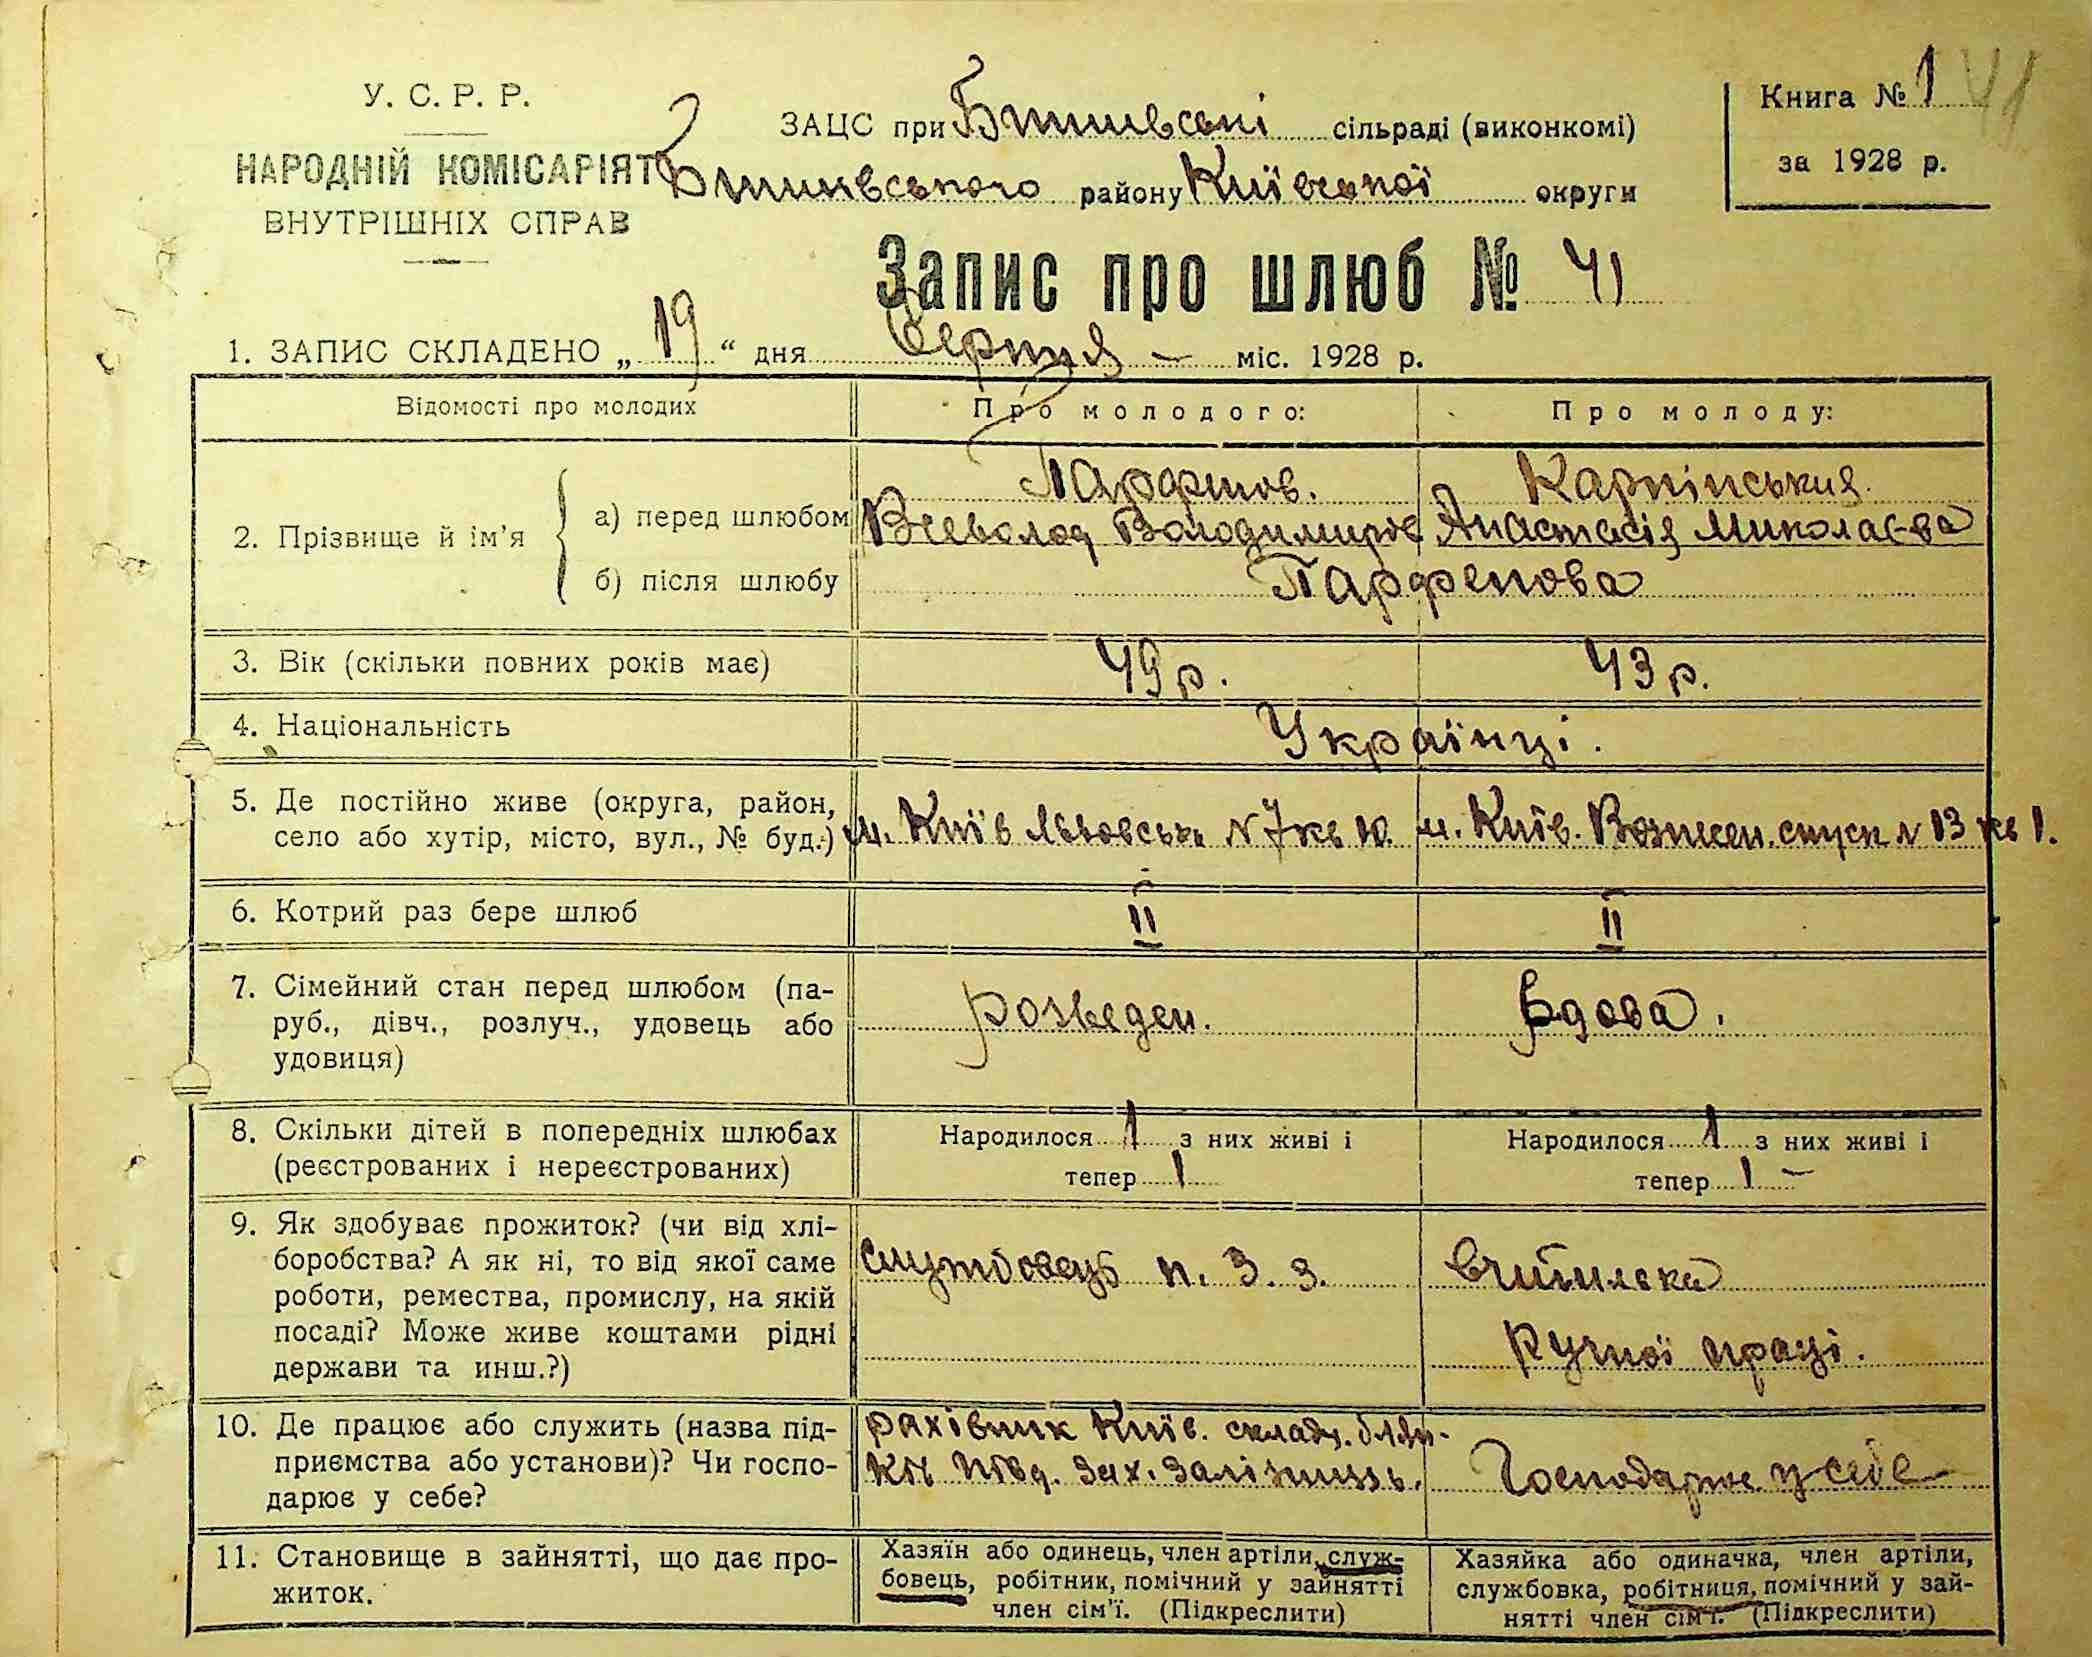 У. С. Р. Р.
НАРОДНІЙ КОМІСАРІЯТ
ВНУТРІШНІХ СПРАВ
ЗАЦС при сільраді (виконкомі)
району Київської округи
Книга № 1 41
за 1928 р.
Запис про шлюб № 41
1. ЗАПИС СКЛАДЕНО „ 19 “ дня Серпня — міс. 1928 р.
Відомості про молодих
Про молодого:
Про молоду:
2. Прізвище й ім’я
а) перед шлюбом
Парфенов.
Всеволод Володимиров
Карпінська
Анастасія Миколаєва
б) після шлюбу
Парфенова
3. Вік (скільки повних років має)
49 р.
43 р.
4. Національність
Українці.
5. Де постійно живе (округа, район,
село або хутір, місто, вул., № буд.)
м. Київ Львовська N 7 кв 10.
м. Київ. Вознесен. спуск N 13 кв 1.
6. Котрий раз бере шлюб
II
II
7. Сімейний стан перед шлюбом (па-
руб., дівч., розлуч., удовець або
удовиця)
розведен.
Вдова.
8. Скільки дітей в попередніх шлюбах
(реєстрованих і нереєстрованих)
Народилося 1 з них живі і
тепер 1
Народилося 1 з них живі і
тепер 1 —
9. Як здобуває прожиток? (чи від хлі-
боробства? А як ні, то від якої саме
роботи, ремества, промислу, на якій
посаді? Може живе коштами рідні
держави та инш.?)
службовець п. З. з.
вчителька
ручної праці.
10. Де працює або служить (назва під-
приємства або установи)? Чи госпо-
дарює у себе?
рахівник Київ. склад. блан-
ків Півд. Зах. Залізниць.
Господарює у себе
11. Становище в зайнятті, що дає про-
житок.
Хазяїн або одинець, член артіли, служ-
бовець, робітник, помічний у зайнятті
член сім’ї. (Підкреслити)
Хазяйка або одиначка, член артіли,
службовка, робітниця, помічний у зай-
нятті член сім’ї. (Підкреслити)